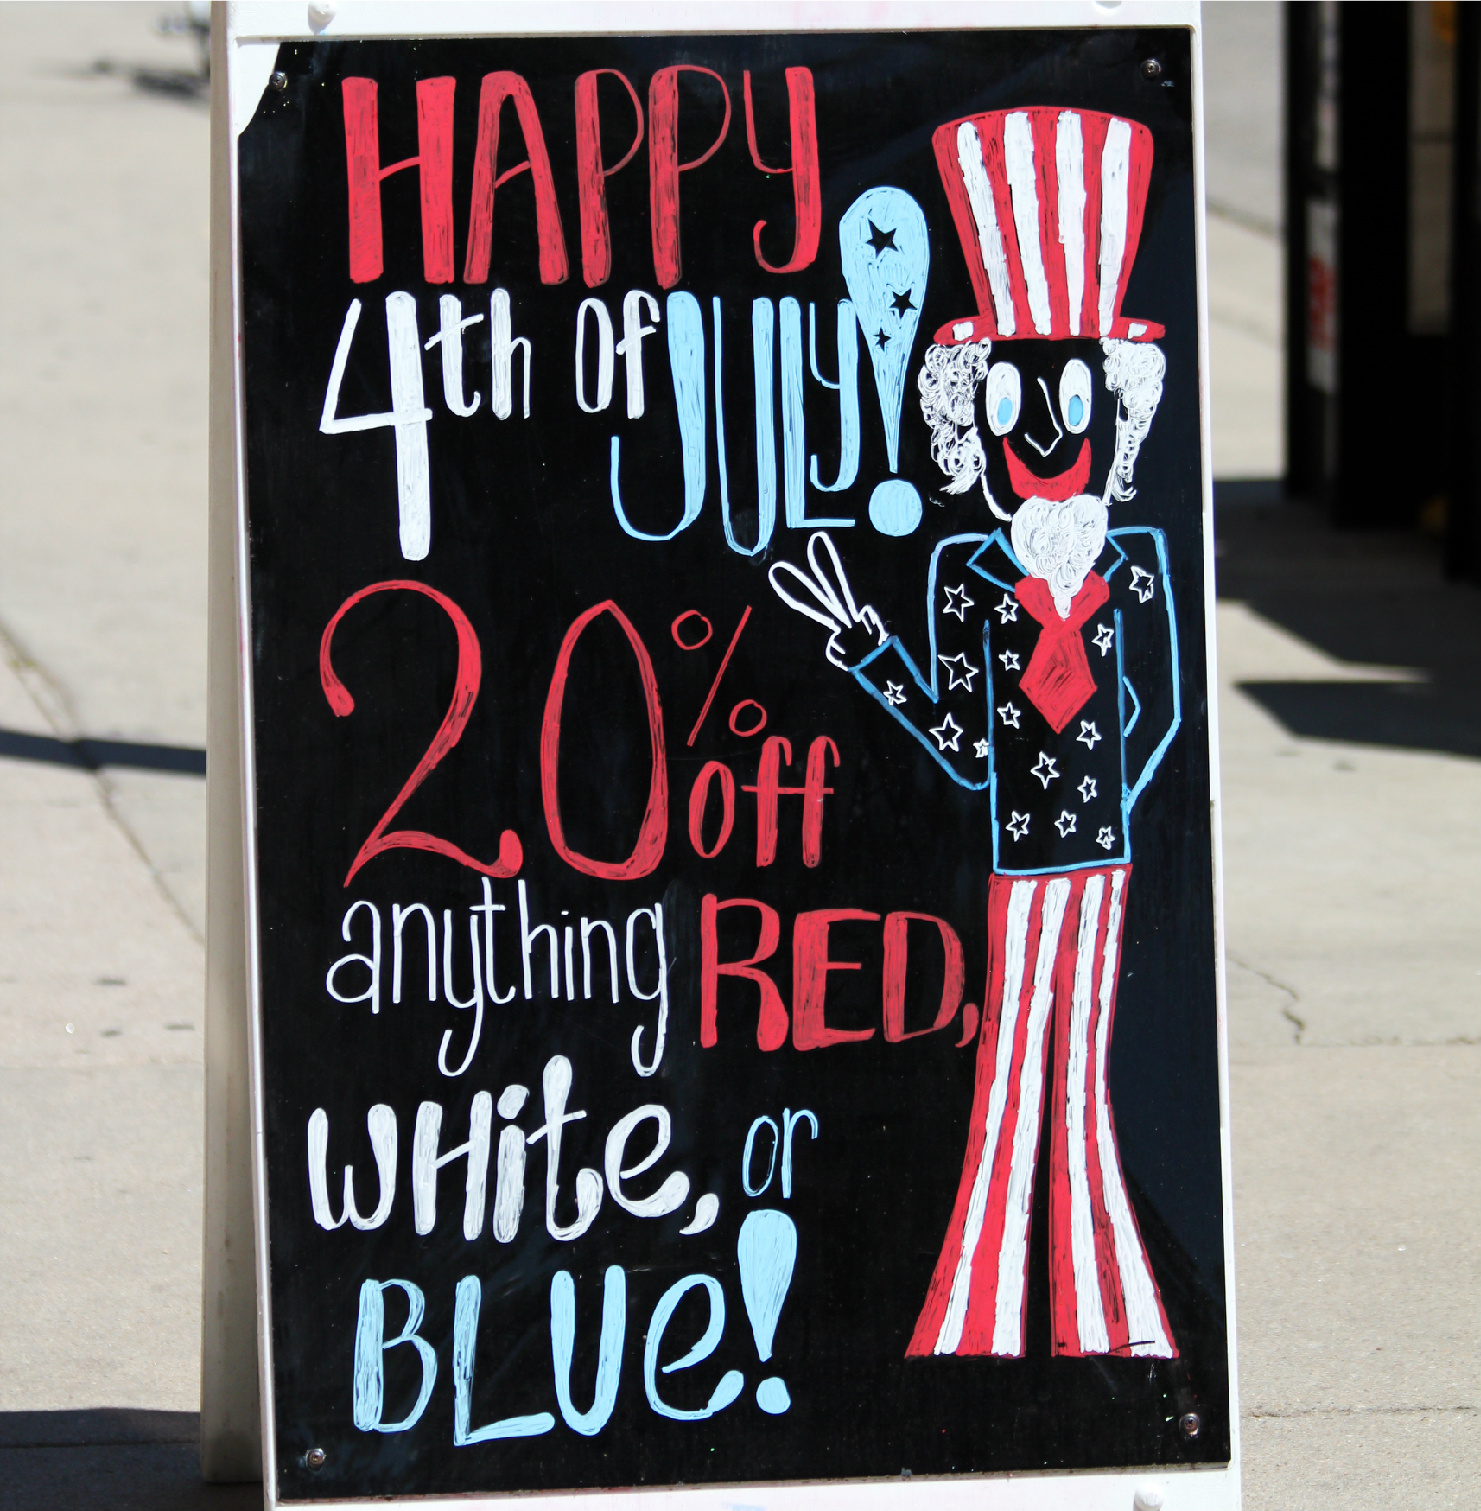 HAPPY
4th of JULY!
20% off
anything RED,
WHite, or
BLUe!